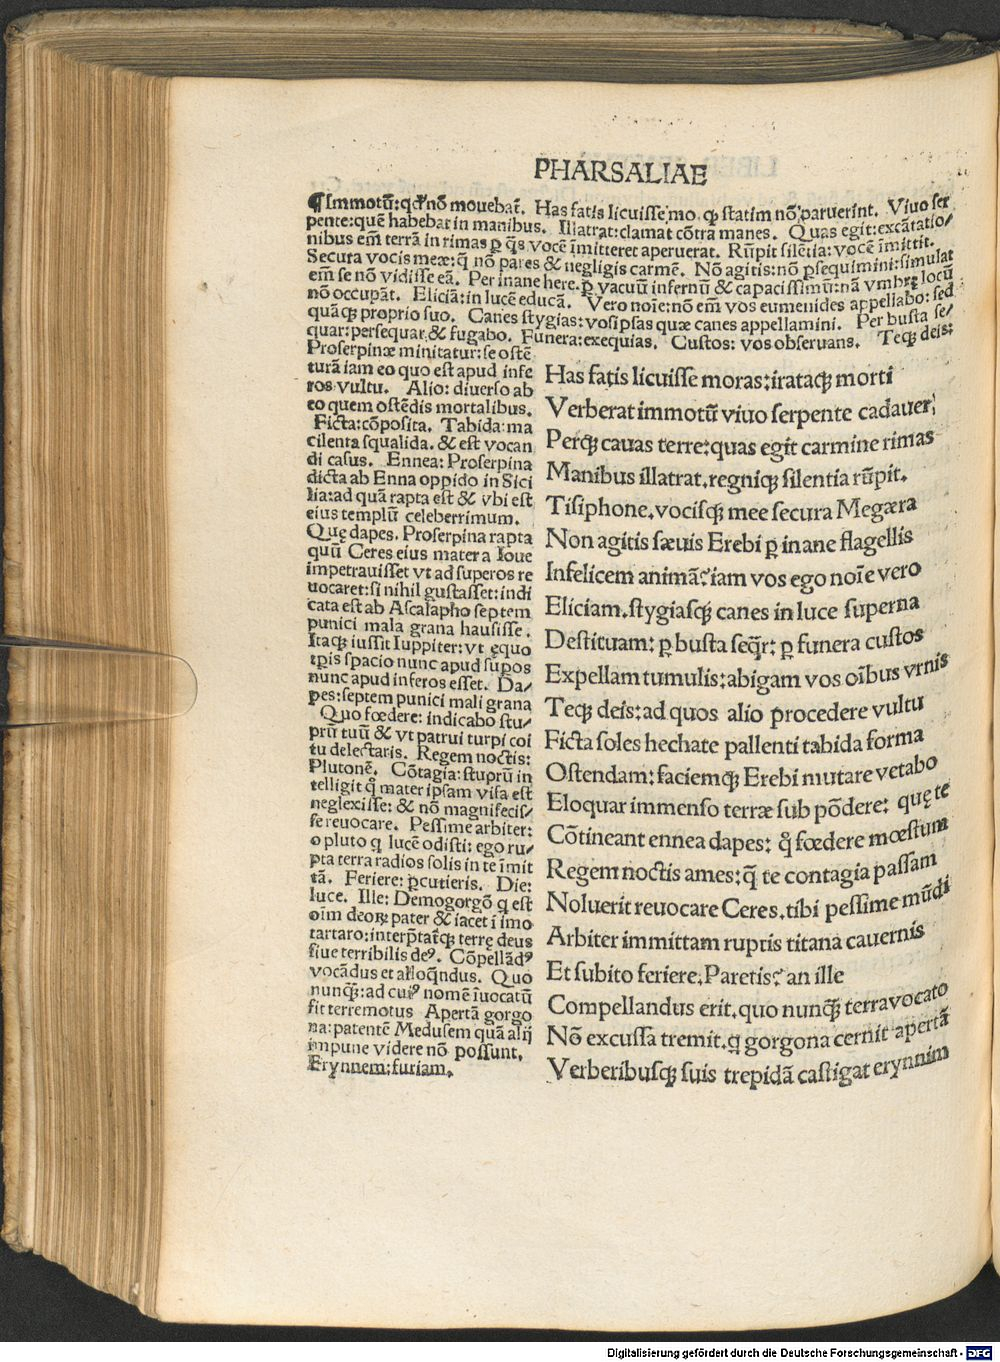 PHARSALIAE
¶Immotū:qđ nō mouebat̄. Has fatis licuisse mo. ꝙ statim nō paruerint. Viuo ser
pente:quē habebat in manibus. Illatrat:clamat cōtra manes. Quas egit:excātatio/
nibus em̄ terrā in rimas ꝑ q̄s vocē īmitteret aperuerat. Rūpit silētia:vocē īmittit.
Secura vocis meæ:q̄ nō pares & negligis carmē. Nō agitis:nō ꝑsequimini:simulat
em̄ se nō vidisse eā. Per inane here.ꝑ vacuū infernū & capacissimū:nā vmbrę locū
nō occupāt. Eliciā:in lucē educā. Vero noīe:nō em̄ vos eumenides appellabo:sed
quāqꝫ proprio suo. Canes stygias:vosipsas quæ canes appellamini. Per busta se/
quar:persequar & fugabo. Funera:exequias. Custos: vos obseruans. Teqꝫ deis:
Proserpinæ minitatur:se ostē
turā iam eo quo est apud infe
ros vultu. Alio: diuerso ab
eo quem ostēdis mortalibus.
Ficta:cōposita. Tabida:ma
cilenta squalida. & est vocan
di casus. Ennea: Proserpina
dicta ab Enna oppido in Sici
lia:ad quā rapta est & vbi est
eius templū celeberrimum.
Quę dapes. Proserpina rapta
quū Ceres eius mater a Ioue
impetrauisset vt ad superos re
uocaret:si nihil gustasset:indi
cata est ab Ascalapho septem
punici mala grana hausisse.
Itaqꝫ iussit Iuppiter:vt ęquo
tꝑis spacio nunc apud suꝑos
nunc apud inferos esset. Da/
pes:septem punici mali grana
Quo fœdere: indicabo stu/
prū tuū & vt patrui turpi coi
tu delectaris. Regem noctis:
Plutonē. Cōtagia:stuprū in
telligit ꝙ mater ipsam visa est
neglexisse: & nō magnifecis/
se reuocare. Pessime arbiter:
o pluto q lucē odisti: ego ru/
pta terra radios solis in te īmit
tā. Feriere: ꝑcutieris. Die:
luce. Ille: Demogorgō q est
oīm deoꝝ pater & iacet ī imo
tartaro:interp̄tat̄qꝫ terrę deus
siue terribilis deꝰ. Cōpellādꝰ
vocādus et alloq̄ndus. Quo
nunqꝫ:ad cuiꝰ nomē īuocatū
fit terremotus Apertā gorgo
na:patentē Medusem quā alij
impune videre nō possunt.
Erynnem:furiam.
Has fatis licuisse moras:irataqꝫ morti
Verberat immotū viuo serpente cadauer:
Perqꝫ cauas terre:quas egit carmine rimas
Manibus illatrat.regniqꝫ silentia rūpit.
Tisiphone.vocisqꝫ mee secura Megæra
Non agitis sæuis Erebi ꝑ inane flagellis
Infelicem animā?iam vos ego noīe vero
Eliciam.stygiasqꝫ canes in luce superna
Destituam: ꝑ busta seq̄r: ꝑ funera custos
Expellam tumulis:abigam vos oībus vrnis
Teqꝫ deis:ad quos alio procedere vultu
Ficta soles hechate pallenti tabida forma
Ostendam: faciemqꝫ Erebi mutare vetabo
Eloquar immenso terræ sub pōdere: quę te
Cōtineant ennea dapes: q̊ fœdere mœstum
Regem noctis ames:q̄ te contagia passam
Noluerit reuocare Ceres.tibi pessime mūdi
Arbiter immittam ruptis titana cauernis
Et subito feriere.Paretis? an ille
Compellandus erit.quo nunqꝫ terra vocato
Nō excussa tremit.q gorgona cernit apertā
Verberibusqꝫ suis trepidā castigat erynnim
Digitalisierung gefördert durch die Deutsche Forschungsgemeinschaft - DFG